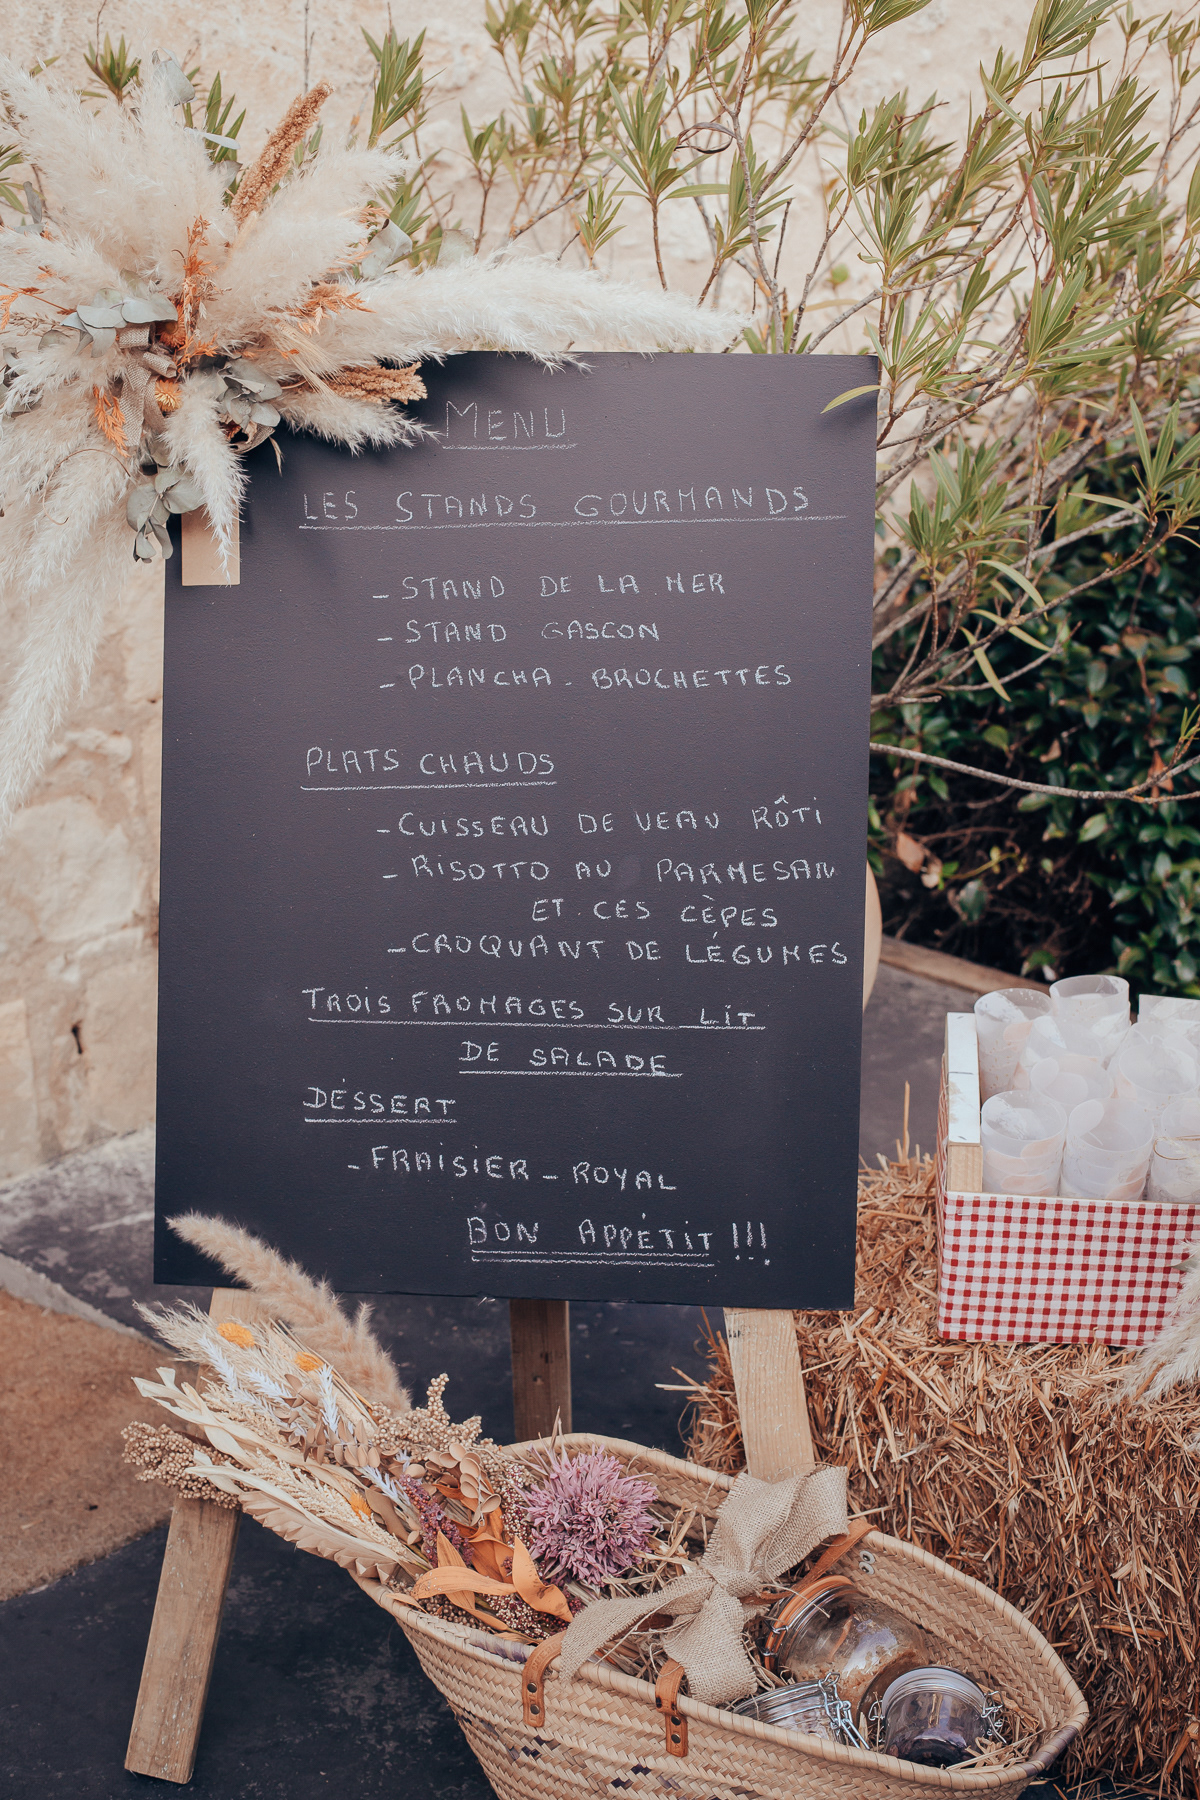 MENU
LES STANDS GOURMANDS
- STAND DE LA MER
- STAND GASCON
- PLANCHA - BROCHETTES
PLATS CHAUDS
- CUISSEAU DE VEAU RÔTI
- RISOTTO AU PARMESAN
ET CES CÈPES
- CROQUANT DE LÉGUMES
TROIS FROMAGES SUR LIT
DE SALADE
DÉSSERT
- FRAISIER - ROYAL
BON APPÉTIT !!!